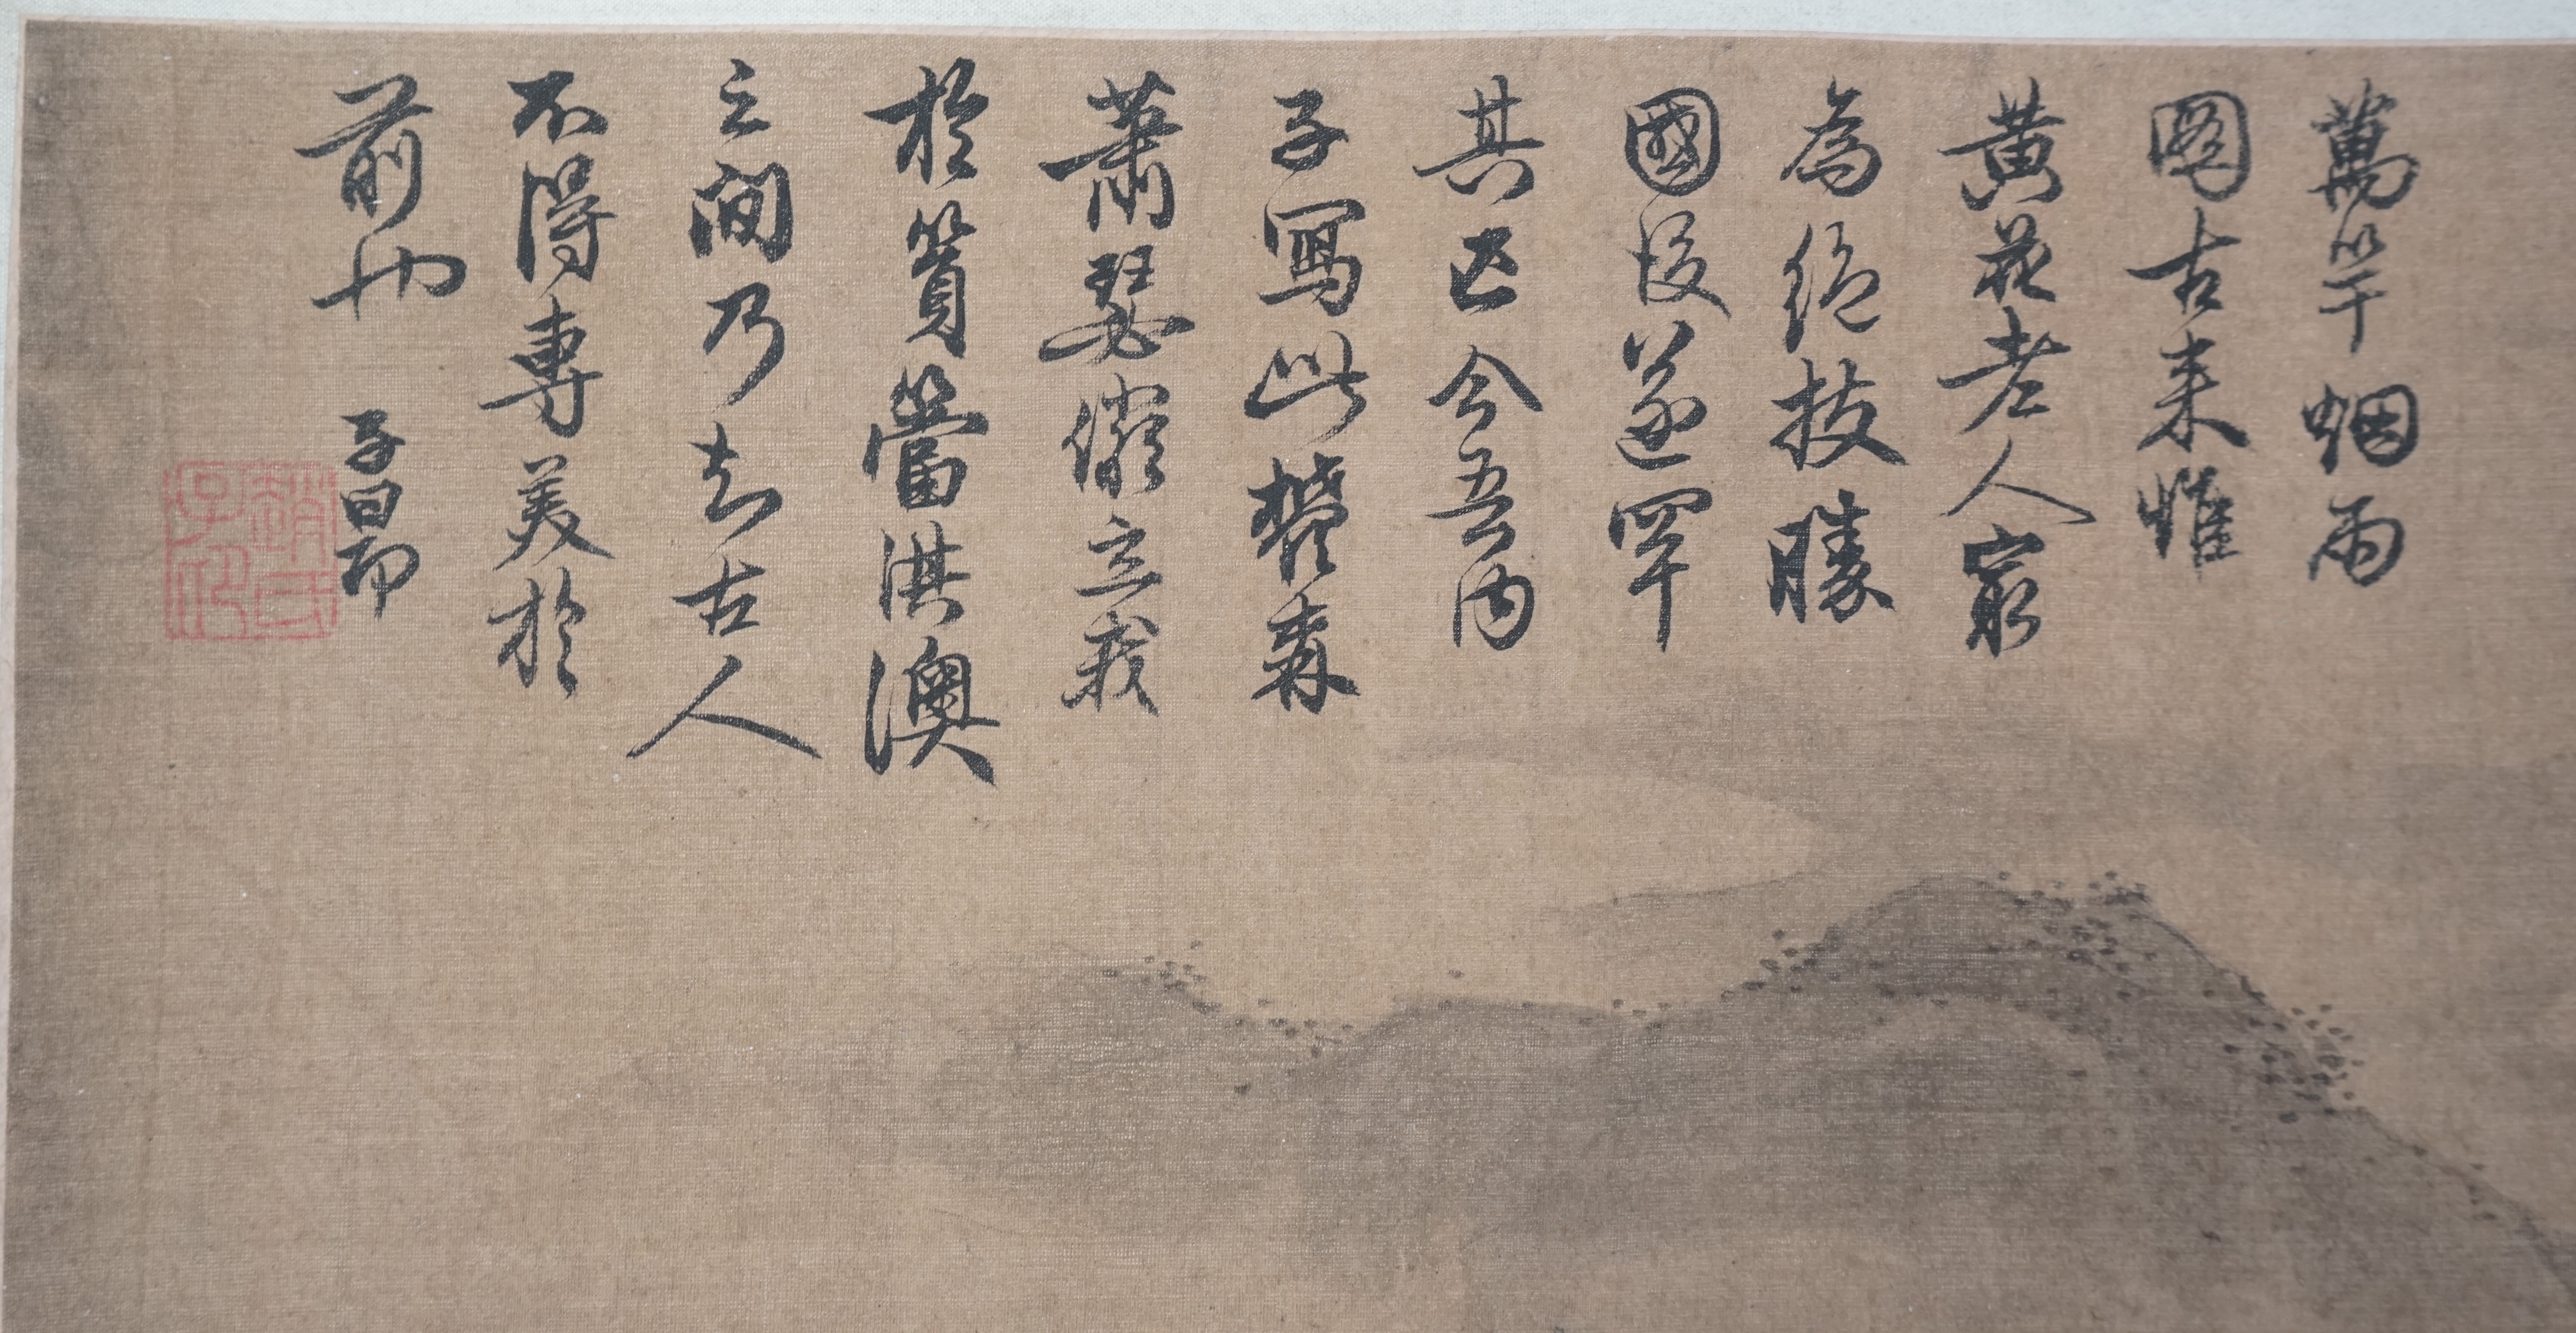 萬竿烟雨
圖古来惟
黄花老人最
為絶技勝
國後遂罕
其匹今吾内
子寫此鬱森
蕭瑟儼立我
於篔簹淇澳
之间乃知古人
不得專美於
前也 子昂
趙氏子印